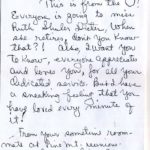 This is from the O!
Everyone is going to miss
Ruth Shuler Dieter, when
she retires, don't you know
that?! Also, I want you
To know, everyone appreciates
and loves you, for all your
dedicated service. And I have
a sneaking feeling that you
have loved every minute of
it!
From your sometime room-
mate at Print Mt. reunion